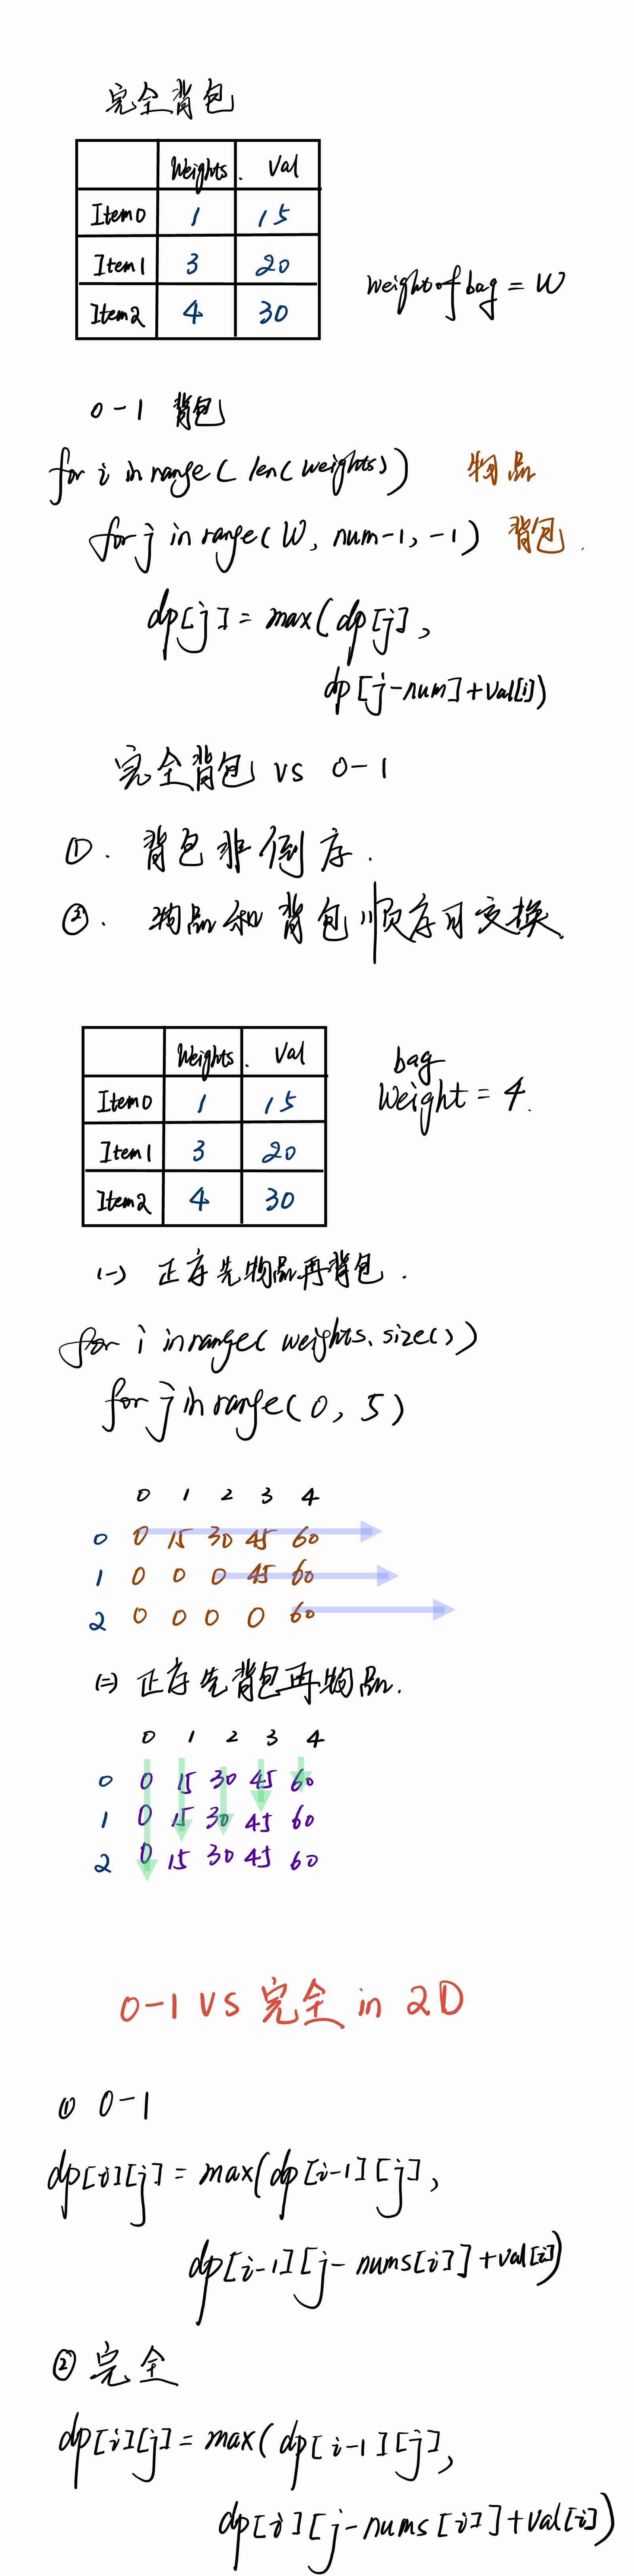 完全背包
Weights. Val
Item0 1 15
Item1 3 20
Item2 4 30
weight of bag = W
0-1 背包
for i in range( len( weights)) 物品
for j in range( W, num-1, -1) 背包.
dp[j] = max( dp[j],
dp[j-num]+val[i])
完全背包 vs 0-1
①. 背包非倒序.
②. 物品和背包顺序可交换.
Weights. Val
Item0 1 15
Item1 3 20
Item2 4 30
bag
Weight = 4.
(一) 正序先物品再背包.
for i in range( weights.size())
for j in range( 0, 5)
0 1 2 3 4
0 0 15 30 45 60
1 0 0 0 45 60
2 0 0 0 0 60
(二) 正序先背包再物品.
0 1 2 3 4
0 0 15 30 45 60
1 0 15 30 45 60
2 0 15 30 45 60
0-1 VS 完全 in 2D
① 0-1
dp[i][j] = max(dp[i-1][j],
dp[i-1][j-nums[i]]+val[i])
② 完全
dp[i][j] = max( dp[i-1][j],
dp[i][j-nums[i]]+val[i])